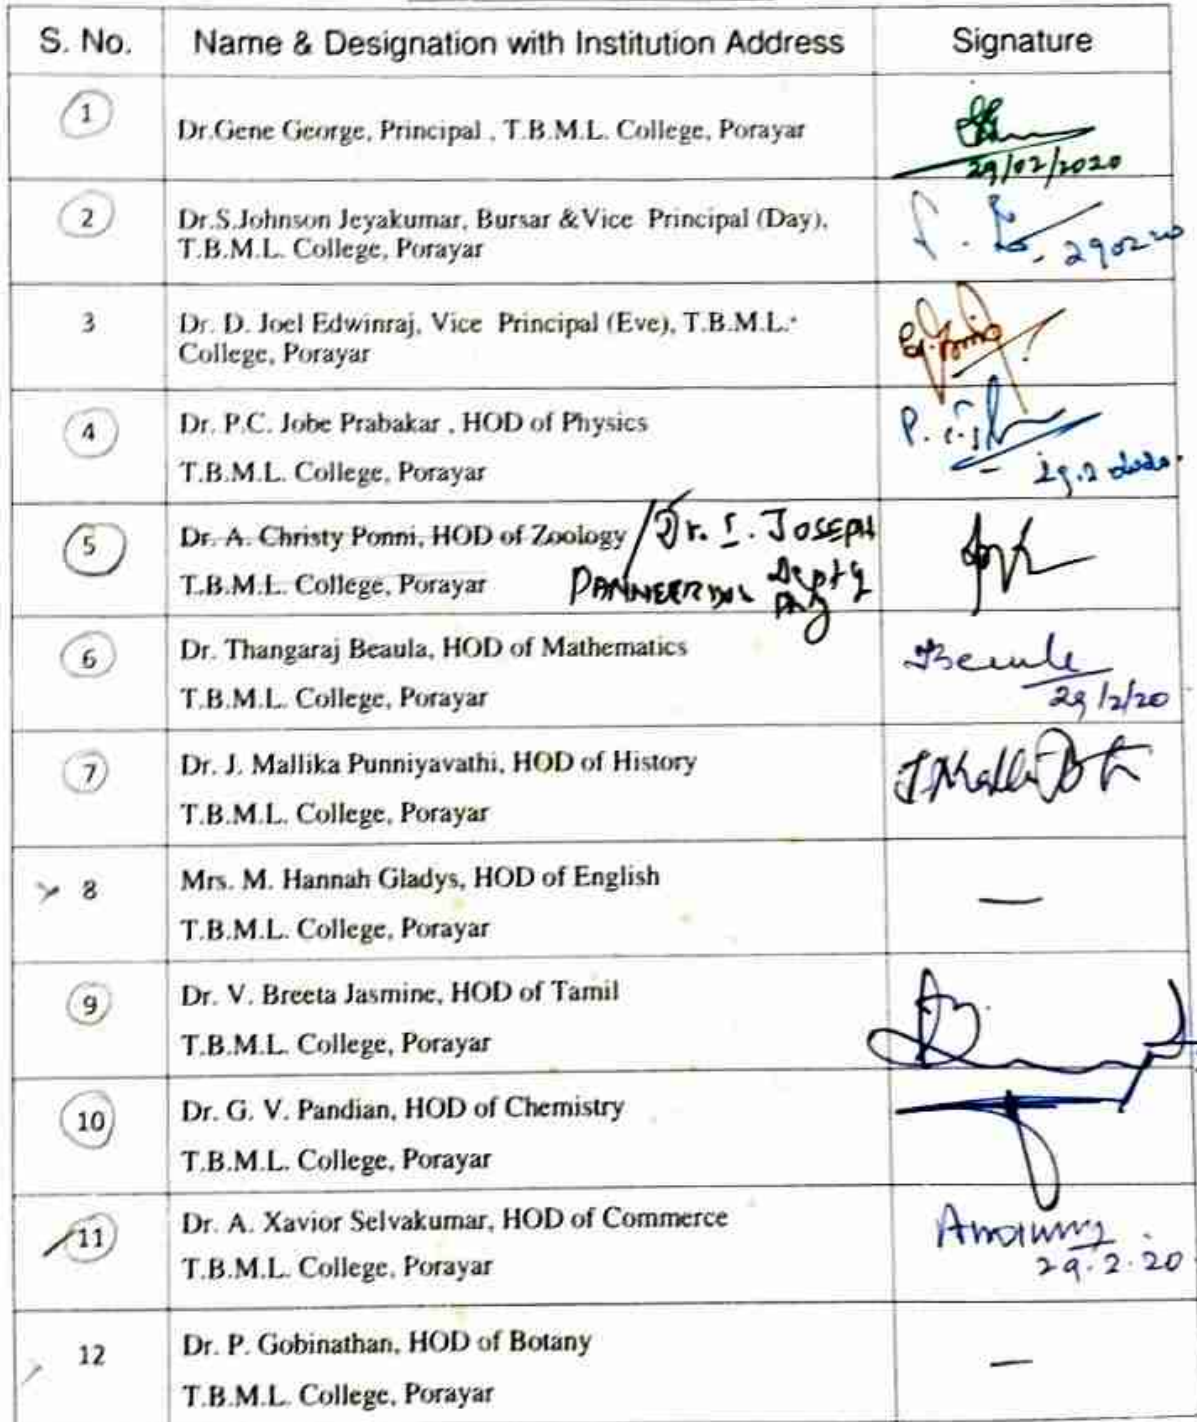 S. No. Name & Designation with Institution Address Signature
1 Dr.Gene George, Principal , T.B.M.L. College, Porayar
29/02/2020
2 Dr.S.Johnson Jeyakumar, Bursar &Vice Principal (Day),
T.B.M.L. College, Porayar
290220
3 Dr. D. Joel Edwinraj, Vice Principal (Eve), T.B.M.L.
College, Porayar
4 Dr. P.C. Jobe Prabakar , HOD of Physics
T.B.M.L. College, Porayar
29.2.2020
5 Dr. A. Christy Ponni, HOD of Zoology / Dr. I. JOSEPH
T.B.M.L. College, Porayar
6 Dr. Thangaraj Beaula, HOD of Mathematics Beaula
T.B.M.L. College, Porayar 29/2/20
7 Dr. J. Mallika Punniyavathi, HOD of History
T.B.M.L. College, Porayar
8 Mrs. M. Hannah Gladys, HOD of English —
T.B.M.L. College, Porayar
9 Dr. V. Breeta Jasmine, HOD of Tamil
T.B.M.L. College, Porayar
10 Dr. G. V. Pandian, HOD of Chemistry
T.B.M.L. College, Porayar
11 Dr. A. Xavior Selvakumar, HOD of Commerce
T.B.M.L. College, Porayar 29.2.20
12 Dr. P. Gobinathan, HOD of Botany —
T.B.M.L. College, Porayar